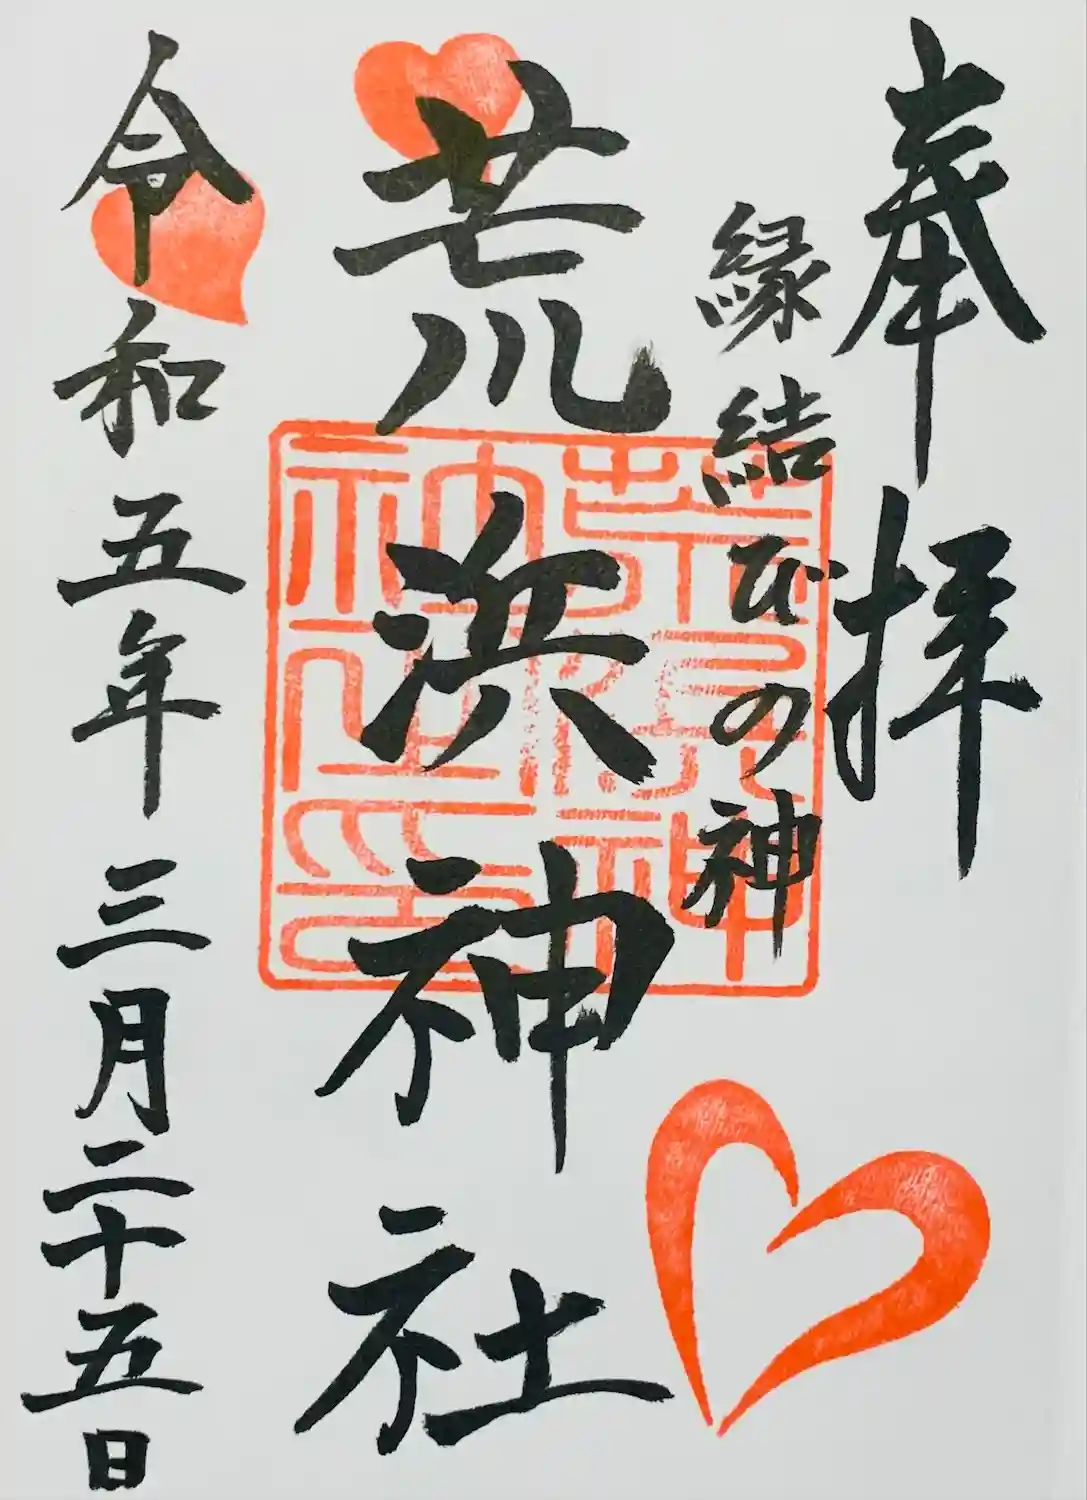 奉拝
縁結びの神
荒川浜神社
令和五年三月二十五日